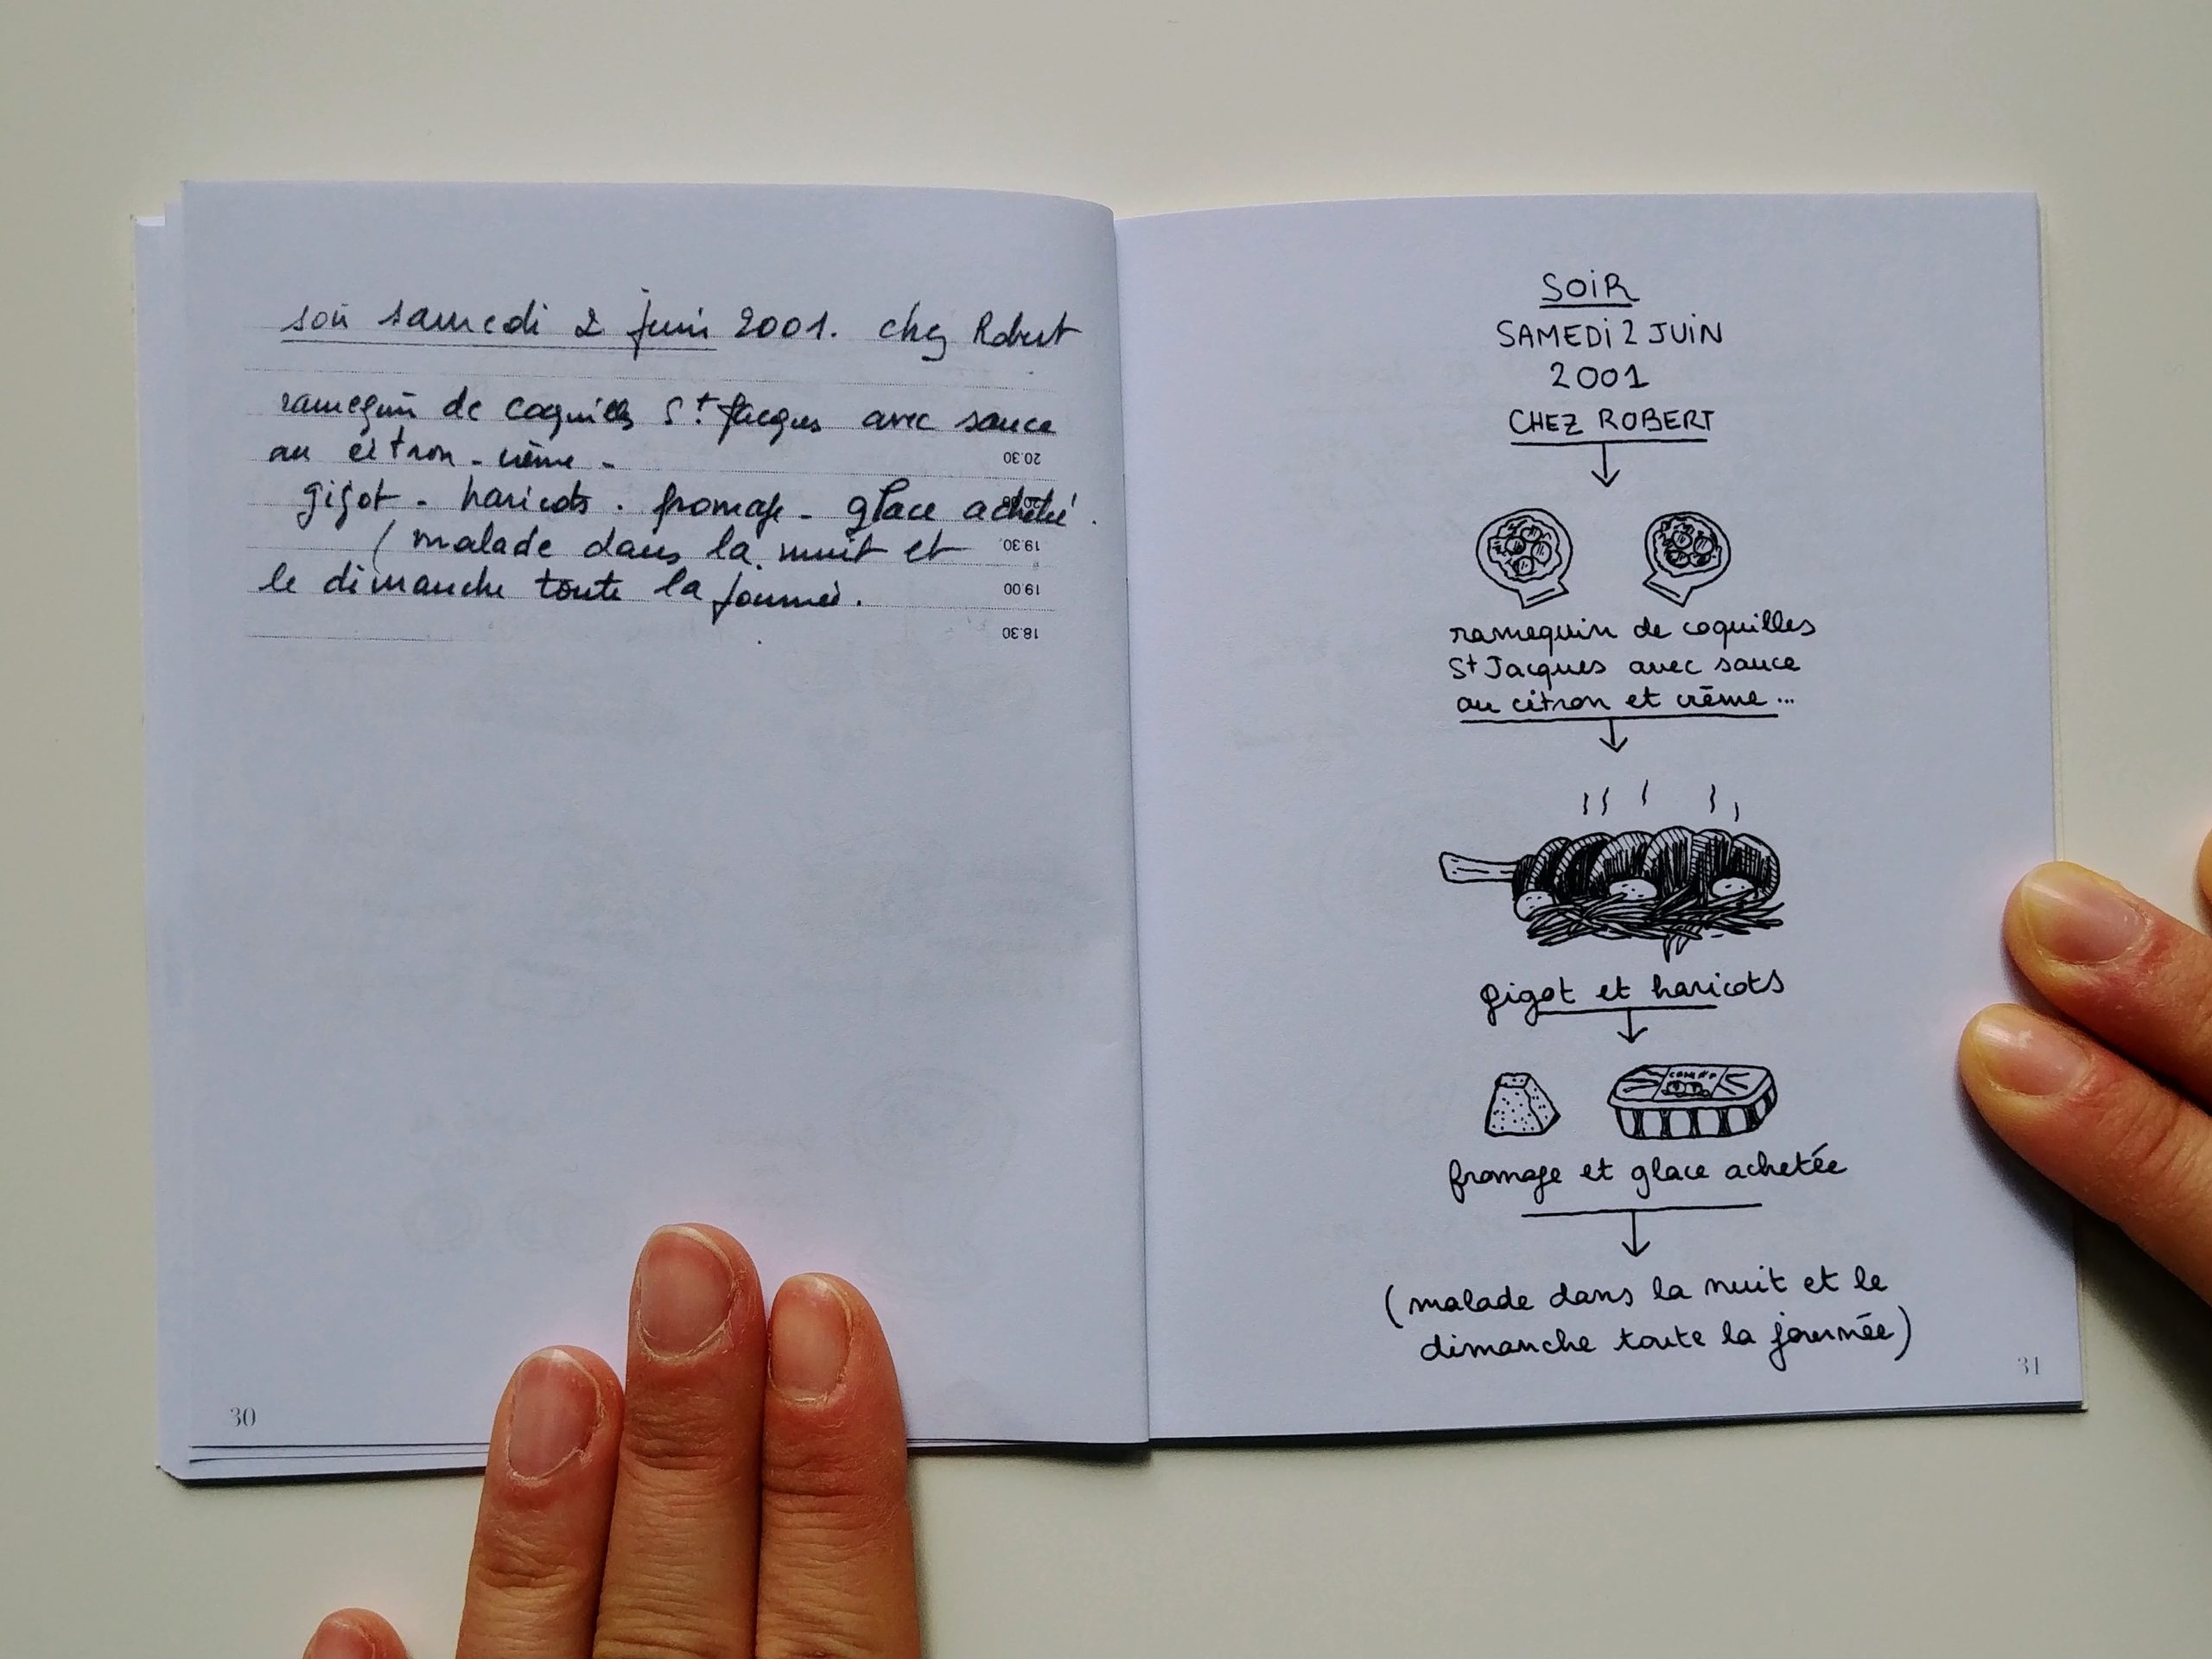 soir samedi 2 juin 2001. chez Robert
ramequin de coquilles St. Jacques avec sauce
au citron - crème -
20.30
gigot - haricots . fromage - glace achetée .
20.00
(malade dans la nuit et
19.30
le dimanche toute la journée.
19.00
18.30
30
SOiR
SAMEDi 2 JUiN
2001
CHEZ ROBERT
ramequin de coquilles
St Jacques avec sauce
au citron et crème ...
gigot et haricots
fromage et glace achetée
(malade dans la nuit et le
dimanche toute la journée)
31